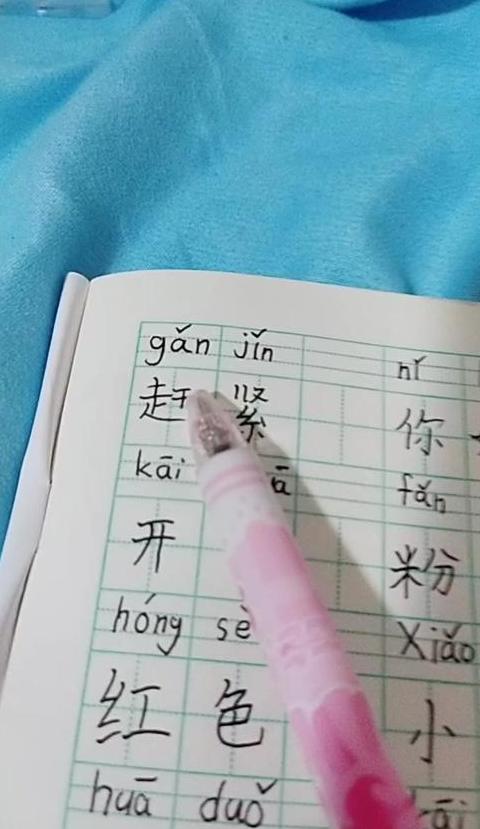 gǎn jǐn nǐ
赶 紧 你
kāi fǎn
开 粉
hóng sè Xiǎo
红 色 小
huā duǒ